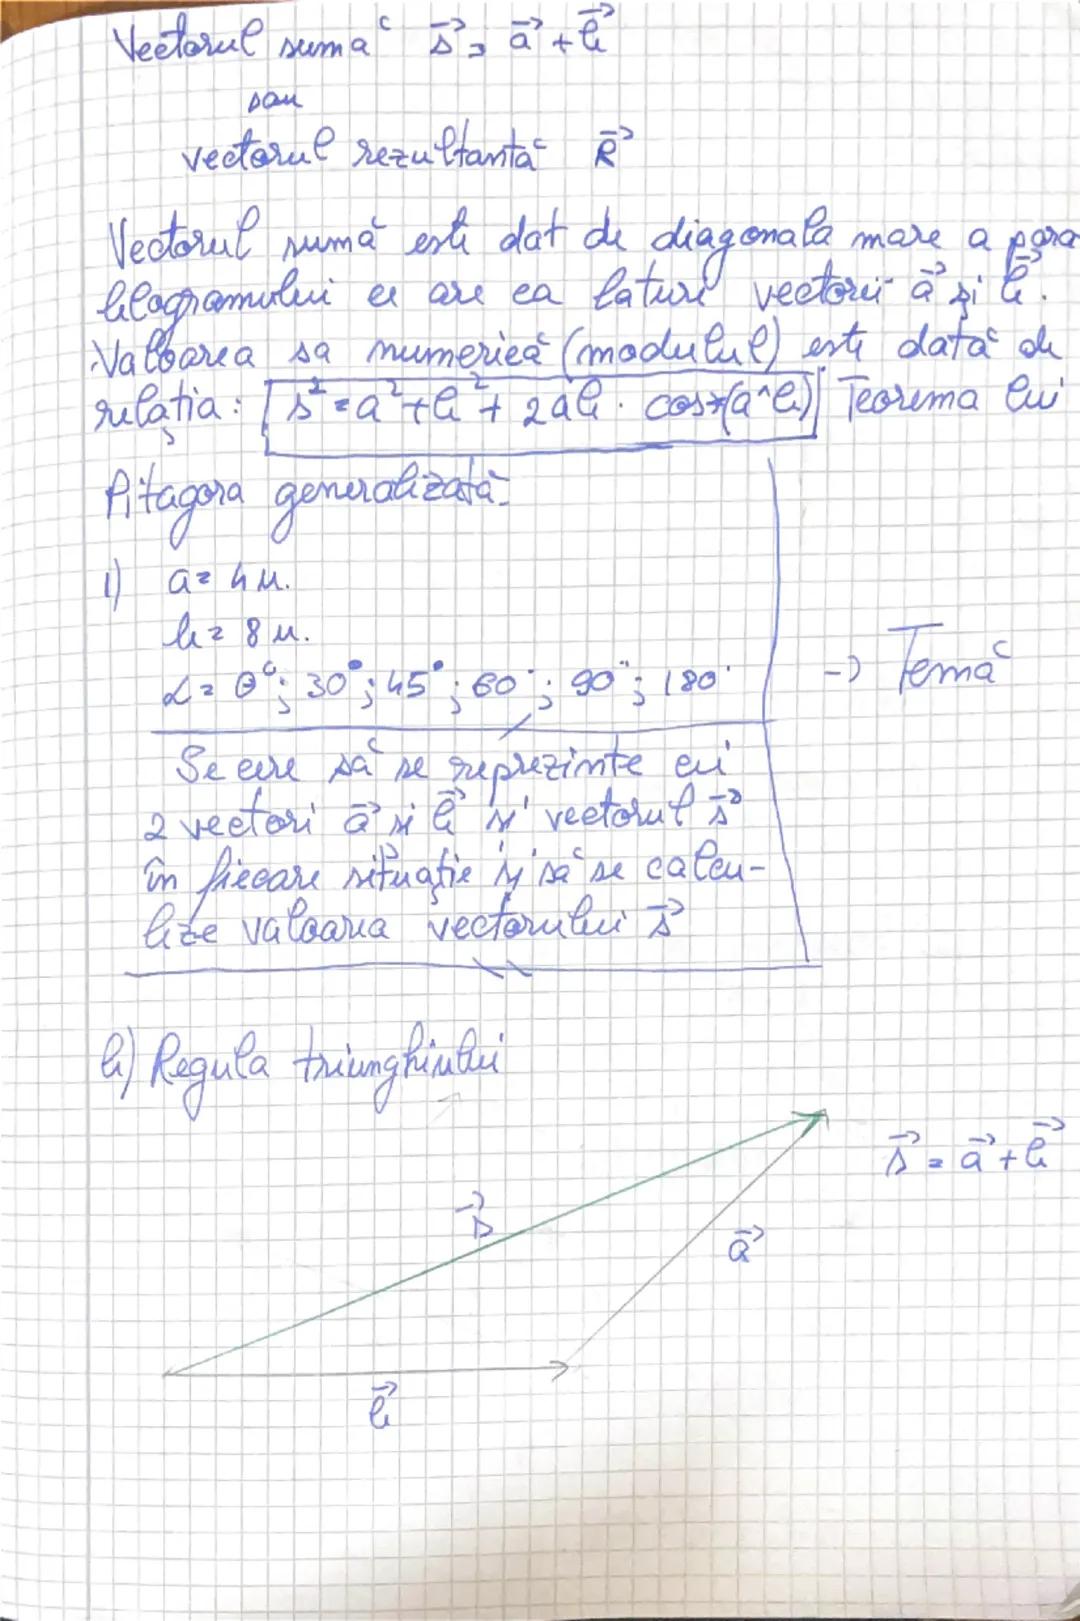 Vectorul sumă s⃗ = a⃗ + b⃗
sau
vectorul rezultantă R⃗
Vectorul sumă este dat de diagonala mare a para
lelogramului ce are ca laturi vectorii a⃗ și b⃗.
Valoarea sa numerică (modulul) este dată de
relația: s² = a² + b² + 2ab · cos∢(a^b) Teorema lui
Pitagora generalizată
1) a = 4 u.
b = 8 u.
α = 0°; 30°; 45°; 60°; 90°; 180° → Temă
Se cere să se reprezinte cei
2 vectori a⃗ și b⃗ și vectorul s⃗
în fiecare situație și să se calcu-
leze valoarea vectorului s⃗
b) Regula triunghiului
s⃗ = a⃗ + b⃗
s⃗
a⃗
b⃗